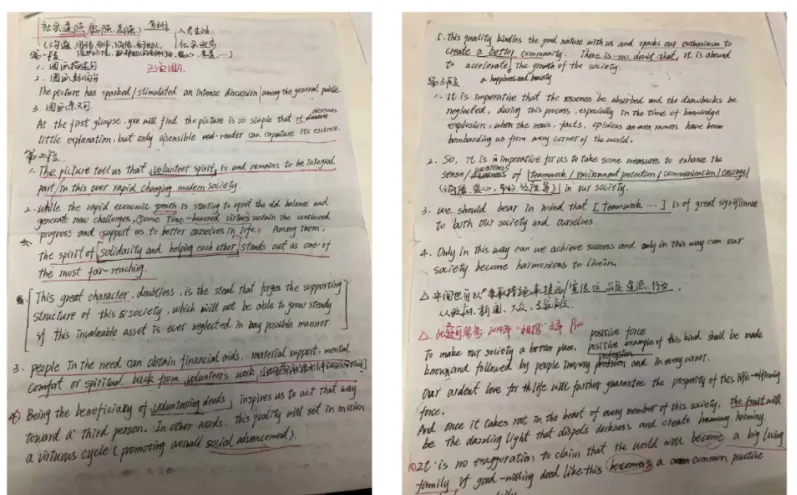 第一段
1. 图画描述句
2. 图画
The picture has sparked/stimulated an intense discussion among the general public
3. 图画
At the first glimpse, you will find the picture is so simple that it deserves
little explanation, but only a sensible reader can capature its essence.
第二段
1. The picture tell us that volunteer spirit is and remains to be integral
part in this ever rapid changing modern society.
2. While the rapid economic growth is starting to upset the old balance and
generate new challenges, some time-honored virtues sustain the continued
progress and support us to better ourselves in life; Among them,
the spirit of solidarity and helping each other stands out as one of
the most far-reaching.
This great character, doubtless, is the steal that forges the supporting
structure of this society, which will not be able to grow steady
if this invaluable asset is ever neglected in any possible manner.
3. people in the need can obtain financial aids, material support, mental
comfort or spiritual back from volunteer's work.
4. Being the beneficiary of volunteering deeds, inspires us to act that way
toward a third person. In other words, this quality will set in motion
a virtuous cycle (promoting overall social advancement).
5. This quality kindles the good nature with us and sparks our enthusiasm to
create a better community. There is no doubt that, it is abound
to accelerate the growth of the society.
第三段
1. It is imperative that the essence be absorbed and the drawbacks be
neglected, during this process, especially in the time of knowledge
explosion, when the news, facts, opinions an even rumors have been
bombarding us from every corner of the world.
2. So, it is imperative for us to take some measures to enhance the
sense/awareness of [teamwork / environment protection / communication / courage/
in our society.
3. we should bear in mind that [Teamwork ...] is of great significance
to both our society and ourselves.
4. Only in this way can we achieve success and only in this way can our
society become harmonious to live in.
positive force
To make our society a better place, positive example of this kind shall be made
known and followed by people in every profession and in every corner.
Our ardent love for life will further guarantee the prosperity of this life-affirming
force.
And once it takes root in the heart of every member of this society, the fruit will
be the dazzling light that dispels darkness and create harmony.
It is no exaggeration to claim that the world will become a big loving
family if good-willing deed like this becomes a common practice